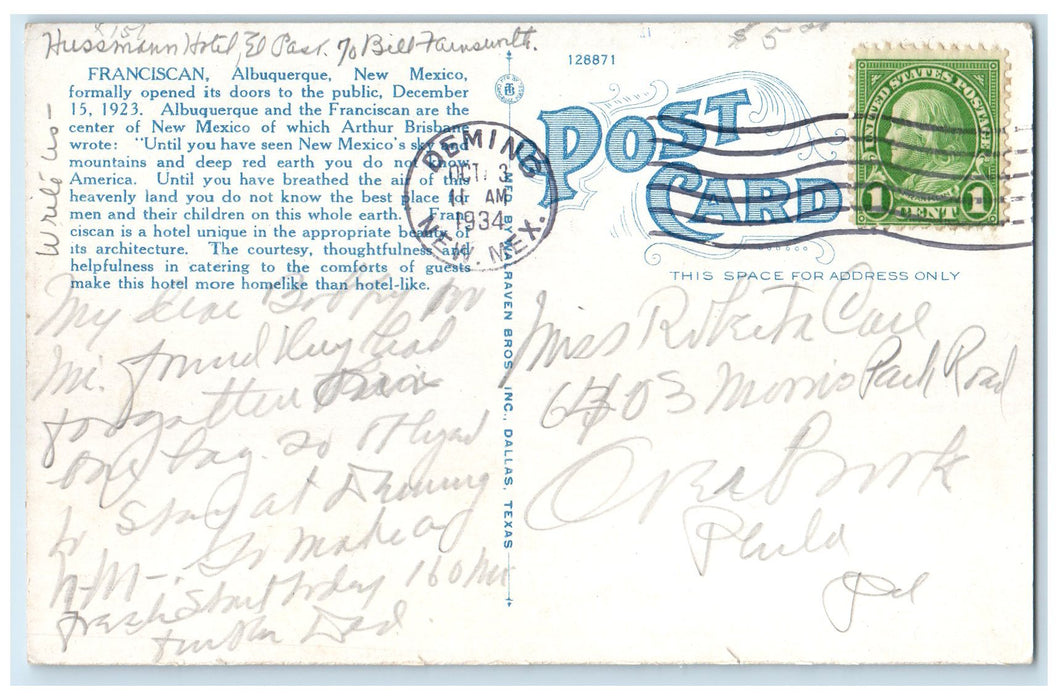 Hussmann Hotel, El Paso. % Bill Farnsworth.
Write us -
FRANCISCAN, Albuquerque, New Mexico,
formally opened its doors to the public, December
15, 1923. Albuquerque and the Franciscan are the
center of New Mexico of which Arthur Brisbane
wrote: "Until you have seen New Mexico's sky and
mountains and deep red earth you do not know
America. Until you have breathed the air of this
heavenly land you do not know the best place for
men and their children on this whole earth." Fran-
ciscan is a hotel unique in the appropriate beauty of
its architecture. The courtesy, thoughtfulness and
helpfulness in catering to the comforts of guests
make this hotel more homelike than hotel-like.
My dear Bobby
found they had
forgotten
one bag. So stayed
to stay at Deming
N.M. - So making
fresh start today 160 mi
further Dad.
MFD. BY WARAVEN BROS. INC., DALLAS, TEXAS
128871
$ 5.00
POST CARD
THIS SPACE FOR ADDRESS ONLY
DEMING
OCT. 3
11 AM
1934
NEW. MEX.
UNITED STATES POSTAGE
FRANKLIN
1 CENT 1
Miss Roberta
6403 Morris Park Road
Overbrook
Phila
Pa